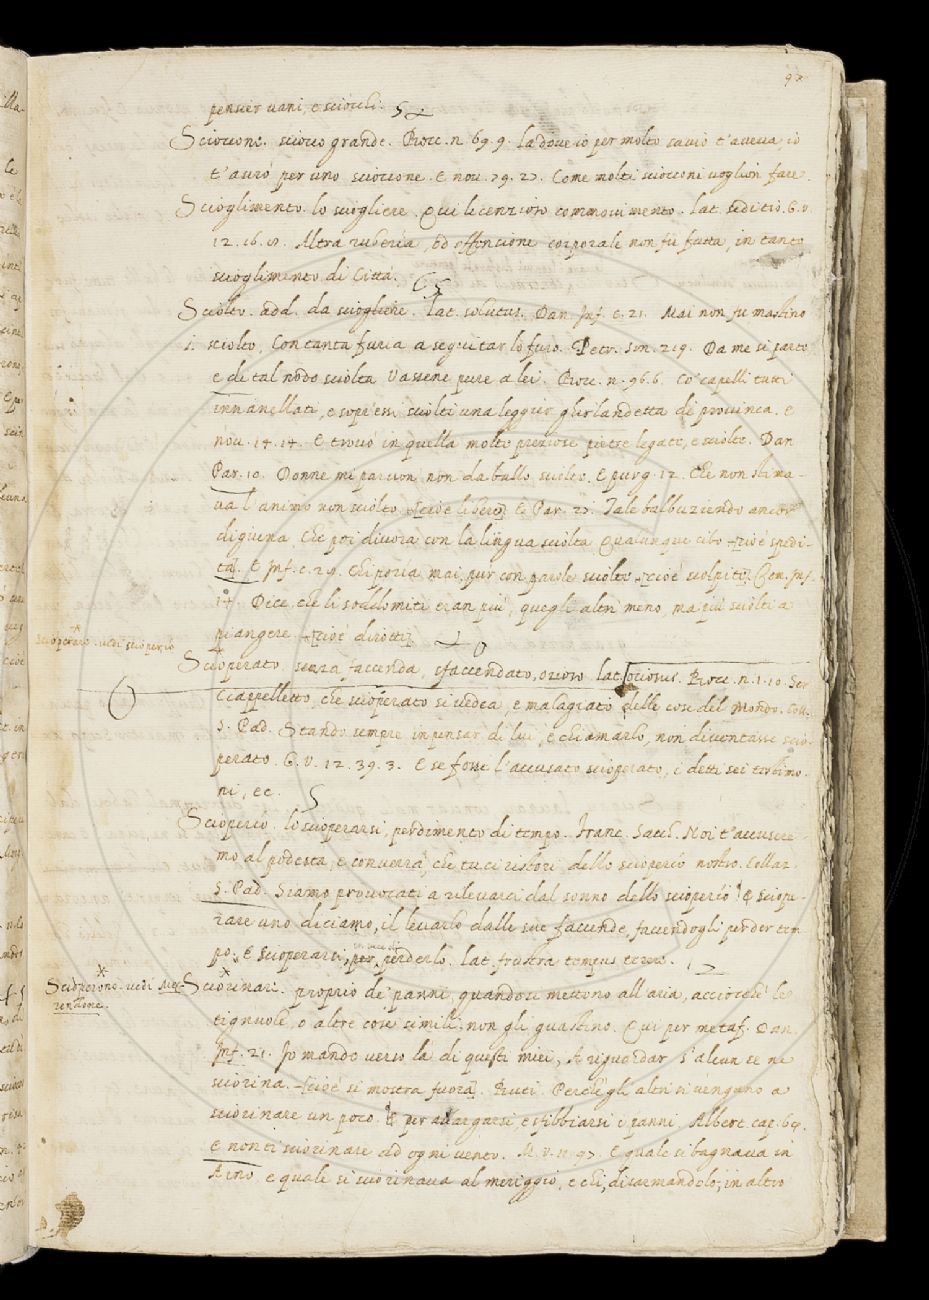 97
pensier vani, e sciocchi.
Scioccone. sciocco grande. Bocc. n. 69. 9. la dove io per molto savio t'aveva, io
t'avrò per uno scioccone. E nov. 79. 27. Come molti scioccconi voglion fare.
Scioglimento. lo sciogliere. Qui licenzioso commovimento. lat. seditio. G. V.
12. 16. 18. Altra ruberia, od offensione corporale non fù fatta, in tanto
scioglimento di Città.
Sciolto. add. da sciogliere. lat. solutus. Dan. Inf. c. 21. Mai non fu mastino
sciolto, Con tanta furia a seguitar lo furo. Petr. Son. 219. Da me si parte
e di tal nodo sciolta Vassene pure a lei. Bocc. n. 96. 6. Co' capelli tutti
innanellati, e sopr'essi sciolti una leggier ghirlandetta di provinca. e
nov. 14. 14. E trovò in quella molte preziose pietre legate, e sciolte. Dan
Par. 10. Donne mi parver non da ballo sciolte. E purg. 12. Che non stima-
va l'animo non sciolto [cioè libero] E Par. 27. Tale balbuziendo ancor
digiuna Che poi divora con la lingua sciolta Qualunque cibo [cioè spedi-
ta]. E Inf. c. 28. Chi poria mai, pur con parole sciolte [cioè sciolpite]. Com. Inf.
14. Dice, che li soddomiti eran più, quegli altri meno, ma più sciolti a
piangere [cioè dirotti]
Scioperare. vedi scioperio
Scioperato. senza faccenda, sfaccendato, ozioso. lat. ociosus. Bocc. n. 1. 10. Ser
Ciappelletto, che scioperato si vedea, e malagiato delle cose del Mondo. Coll.
S. Pad. Stando sempre in pensar di lui, e chiamarlo, non diventasse scio-
perato. G. V. 12. 39. 3. E se fosse l'accusato scioperato, i detti sei testimo-
ni, ec.
Scioperio. lo scioperarsi, perdimento di tempo. Franc. Sacch. Noi t'accusere-
mo al podestà, e converrà, che tu ci ristori dello scioperio nostro. Collaz.
S. Pad. Siamo provocati a rilevarci dal sonno dello scioperio. E sciope-
rare uno diciamo, il levarlo dalle sue faccende, facendogli perder tem
po: E Scioperarsi, per perderlo. lat. frustra tempus terere.
Scioperone. vedi Mer-
rendone.
Sciorinare. proprio de' panni, quando si mettono all'aria, acciocchè le
tignuole, o altre cose simili non gli guastino. Qui per metaf. Dan.
Inf. 21. Io mando verso là di questi miei, A riguardar s'alcun se ne
sciorina. [cioè si mostra fuora]. Buti. Perchè gli altri si vengano a
sciorinare un poco. E per allargarsi e sfibbiarsi i panni. Albert. cap. 64.
E non ti sciorinare ad ogni vento. M. V. 11. 97. E quale si bagnava in
Arno e quale si sciorinava al meriggio, e chi, disarmandosi, in altro